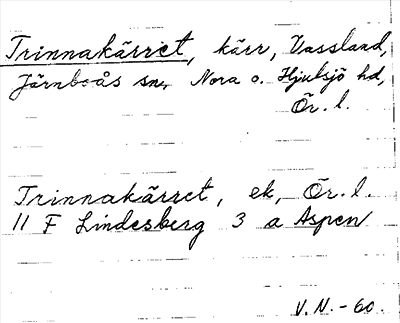 Trinnakärret, kärr, Vassland,
Järnboås sn, Nora o. Hjulsjö hd,
Ör. l.
Trinnakärret, ek, Ör. l.
11 F Lindesberg 3 a Aspen
V.N. -60.